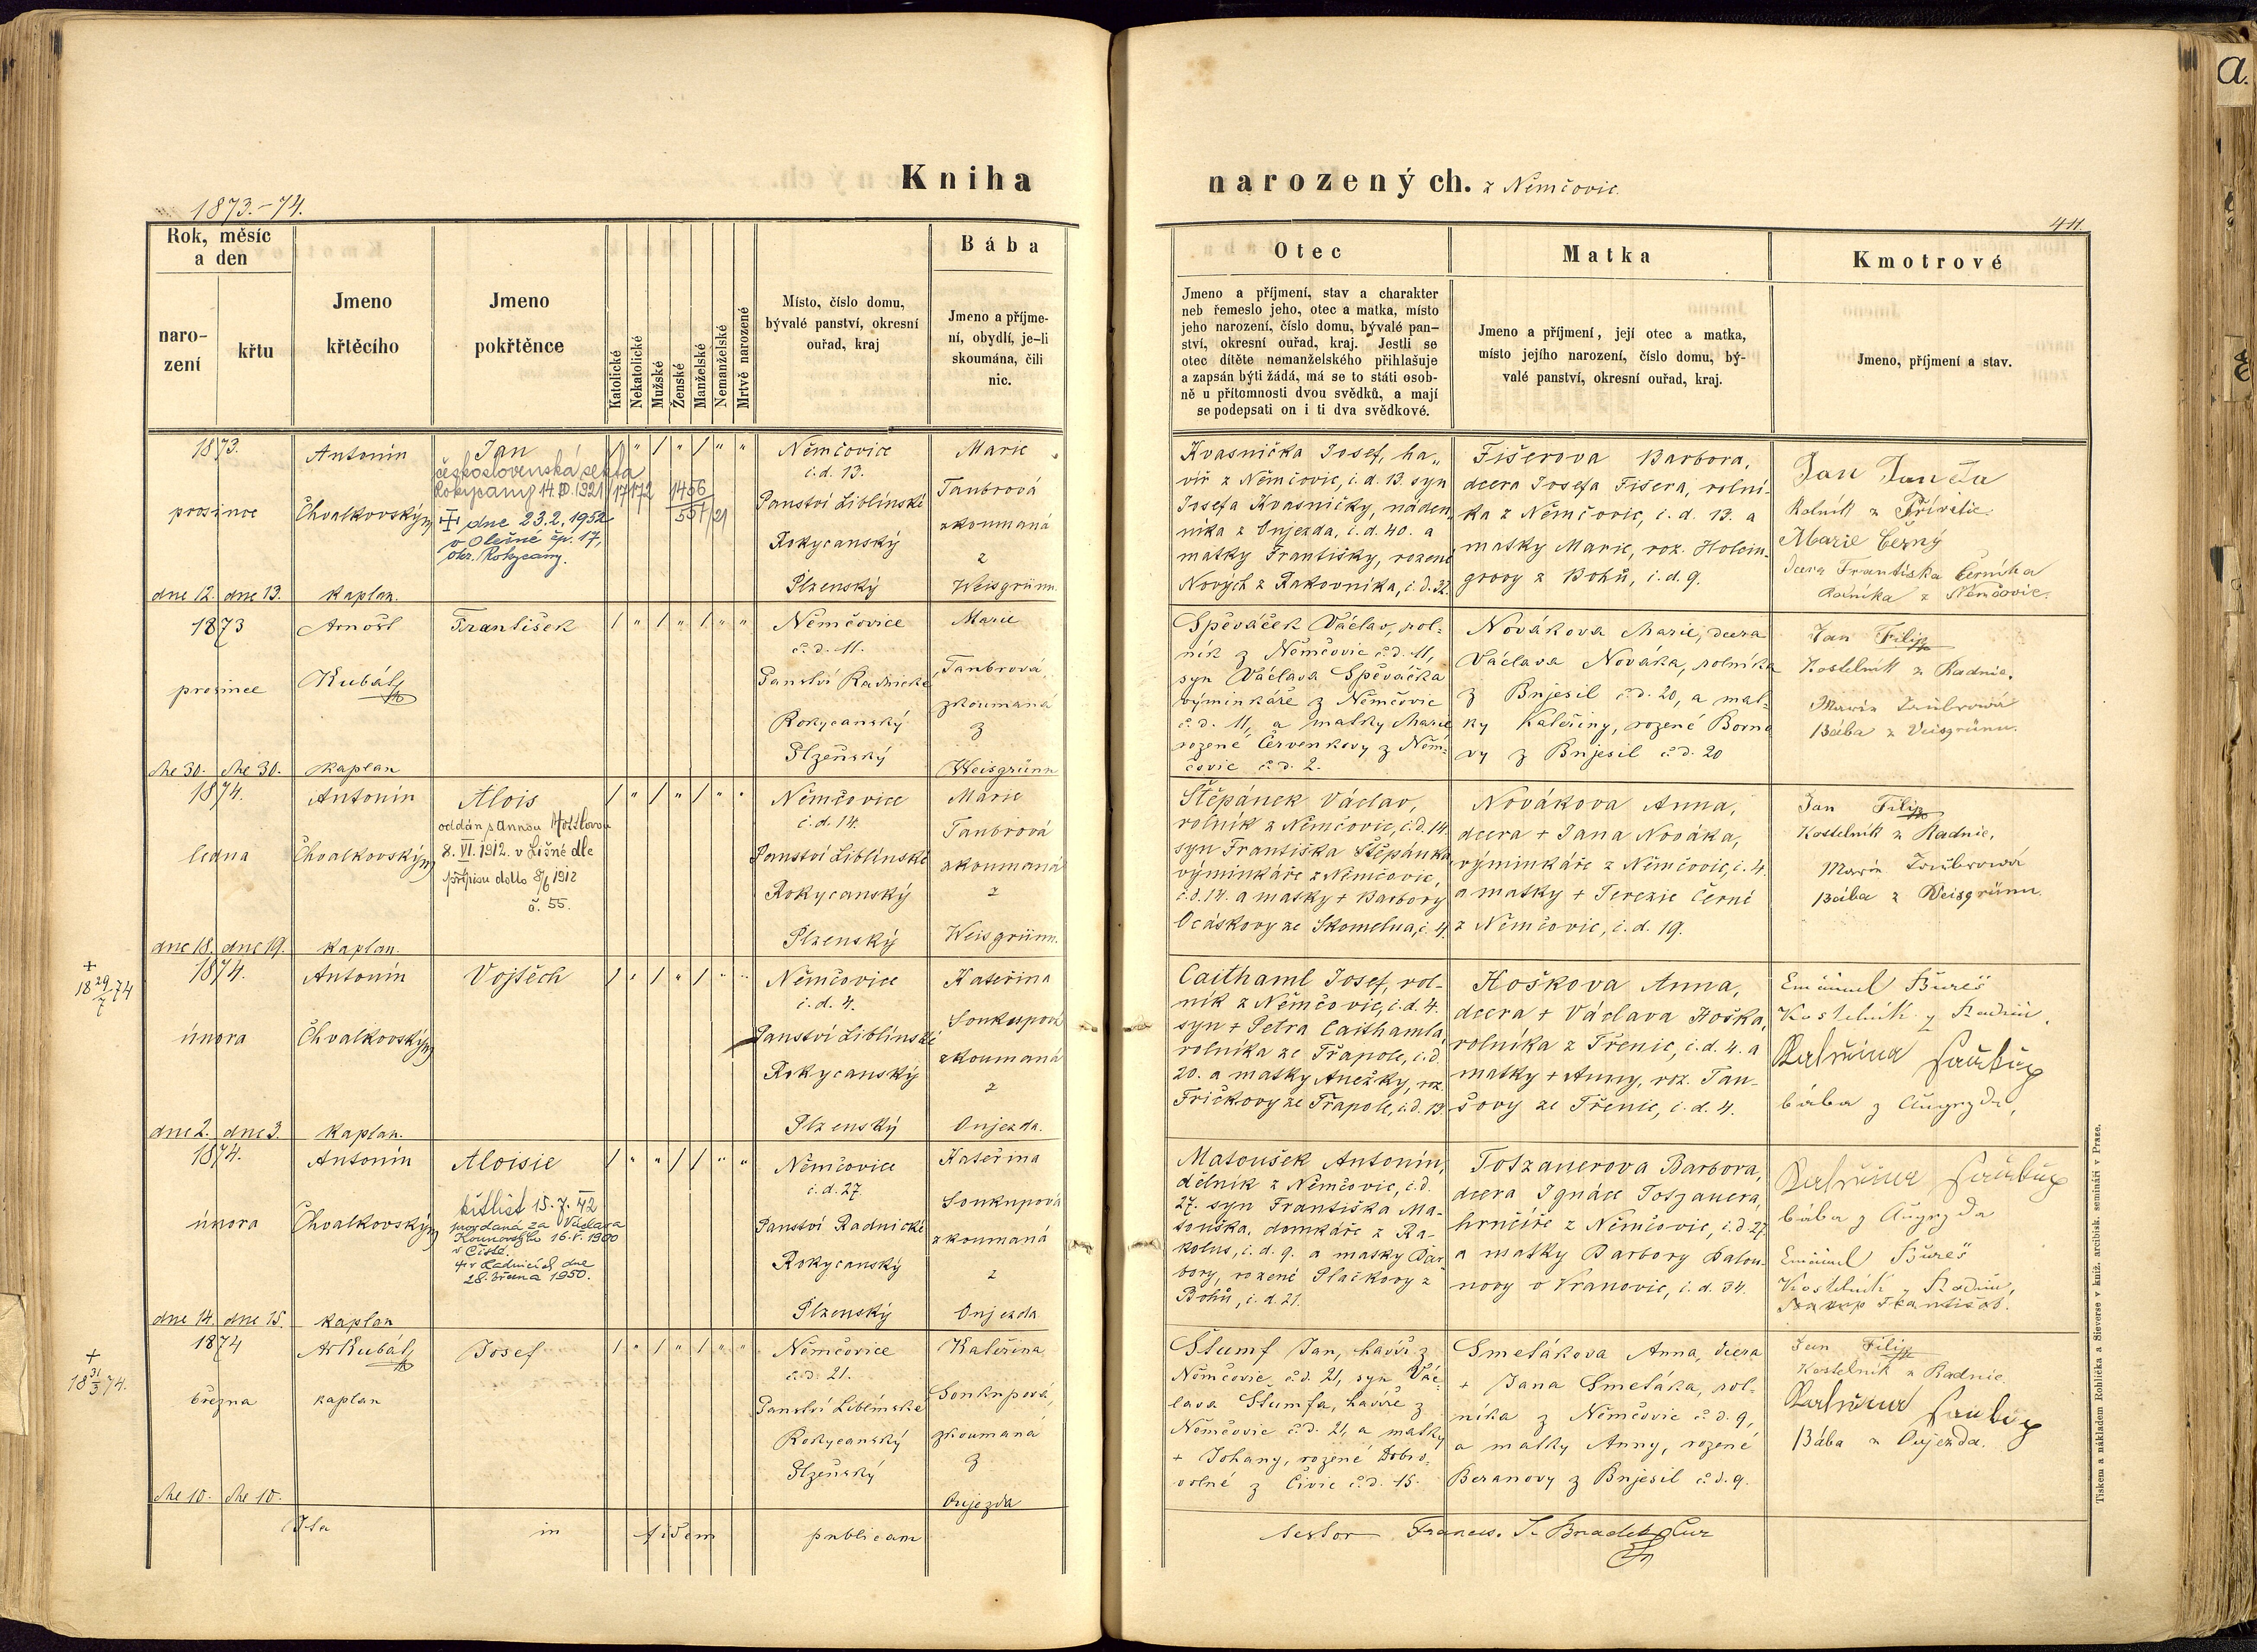 Kniha narozených. z Němčovic.
1873.-74.
411.
a.
Rok, měsíc
a den
naro-
zení
křtu
Jmeno
křtěcího
Jmeno
pokřtěnce
Katolické
Nekatolické
Mužské
Ženské
Manželské
Nemanželské
Mrtvě narozené
Místo, číslo domu,
bývalé panství, okresní
ouřad, kraj
Bába
Jmeno a příjme-
ní, obydlí, je-li
skoumána, čili
nic.
Otec
Jmeno a příjmení, stav a charakter
neb řemeslo jeho, otec a matka, místo
jeho narození, číslo domu, bývalé pan-
ství, okresní ouřad, kraj. Jestli se
otec dítěte nemanželského přihlašuje
a zapsán býti žádá, má se to státi osob-
ně u přítomnosti dvou svědků, a mají
se podepsati on i ti dva svědkové.
Matka
Jmeno a příjmení, její otec a matka,
místo jejího narození, číslo domu, bý-
valé panství, okresní ouřad, kraj.
Kmotrové
Jmeno, příjmení a stav.
1873.
prosince
dne 12. dne 13.
Antonín
Chvalkovský
kaplan.
Jan
československá sekta
Rokycany 14. 1921/17172
1456
551/21
dne 23.2.1952
v Olešné čp. 17,
okr. Rokycany.
/ " / " / " "
Němčovice
č.d. 13.
Panství Liblínské
Rokycanský
Plzenský
Marie
Taubrová
zkoumaná
z
Weisgrünn.
Kvasnička Josef, ha„
víř z Němčovic, č.d. 13. syn
Josefa Kvasničky, náden„
níka z Oujezda, č.d. 40. a
matky Františky, rozené
Nových z Rakovníka, č.d. 32.
Fišerova Barbora,
dcera Josefa Fišera, rolní-
ka z Němčovic, č. d. 13. a
matky Marie, roz. Holein-
grovy z Bohů, č.d. 9.
Jan Janča
Rolník z Přívětic
Marie Černý
dcera Františka Černíka
Rolníka z Němčovic.
1873
prosince
dne 30. dne 30.
Arnošt
Kubát
kaplan
František
/ " / " / " "
Němčovice
č. d. 11.
Panství Radnické
Rokycanský
Plzeňský
Marie
Taubrová
zkoumaná
z
Weisgrünn
Spěváček Václav, rol-
ník z Němčovic č.d. 11,
syn Václava Spěváčka
výminkáře z Němčovic
č.d. 11, a matky Marie
rozené Červenkovy z Něm-
čovic č.d. 2.
Novákova Marie, dcera
Václava Nováka, rolníka
z Bujesil č.d. 20, a mat-
ky Kateřiny, rozené Born
vy z Bujesil č.d. 20
Jan Filip
Kostelník z Radnic.
Marie Taubrowá
Bába z Veisgrünu.
1874.
ledna
dne 18. dne 19.
Antonín
Chvalkovský
kaplan.
Alois
oddán s Annou
8. VI. 1912. v Lišné dle
přípisu ddto 8/6 1912
č. 55.
/ " / " / " "
Němčovice
č.d. 14.
Panství Liblínské
Rokycanský
Plzenský
Marie
Taubrová
zkoumaná
z
Weisgrünn.
Štěpánek Václav,
rolník z Němčovic, č.d. 14.
syn Františka Štěpánka,
výminkáře z Němčovic,
č.d. 14. a matky + Barbory
Ocáskovy ze Skomelna, č. 4.
Novákova Anna,
dcera + Jana Nováka,
výminkáře z Němčovic, č. 4.
a matky + Terezie Černé
z Němčovic, č. d. 19.
Jan Filip
Kostelník z Radnic.
Marie Taubrowá
Bába z Weisgrünu.
+
18 29/7 74
1874.
února
dne 2. dne 3.
Antonín
Chvalkovský
kaplan.
Vojtěch
/ " / " / " "
Němčovice
č. d. 4.
Panství Liblínské
Rokycanský
Plzenský
Kateřina
Soukupová
zkoumaná
z
Oujezda.
Caithaml Josef, rol-
ník z Němčovic, č.d. 4.
syn + Petra Caithamla,
rolníka ze Třapole, č.d.
20. a matky Anežky, roz.
Fričkovy ze Třapole, č.d. 13
Hoškova Anna,
dcera + Václava Hoška,
rolníka z Třenic, č.d. 4. a
matky + Anny, roz. Tau-
šovy ze Třenic, č. d. 4.
Emanuel Bureš
Kostelník z Radnic.
bába z
1874.
února
dne 14. dne 15.
Antonín
Chvalkovský
kaplan
Aloisie
křtlist 15.7.42
provdaná za Václava
16.V.1900
v Čisté.
v Radnicích dne
28. března 1950.
/ " " / / " "
Němčovice
č.d. 27.
Panství Radnické
Rokycanský
Plzenský
Kateřina
Soukupová
zkoumaná
z
Oujezda
Matoušek Antonín,
dělník z Němčovic, č.d.
27. syn Františka Ma-
touška, domkáře z Ra-
kolus, č.d. 9. a matky Bar
bory, rozené Plačkovy z
Bohů, č. d. 21.
Totzauerova Barbora,
dcera Ignáce Totzauera,
hrnčíře z Němčovic, č.d. 27.
a matky Barbory Balou-
novy o Vranovic, č.d. 34.
bába z
Emanuel Bureš
Kostelník z Radnic,
+
18 31/3 74.
1874
března
dne 10. dne 10.
Ar Kubát
kaplan
Josef
/ " / " / " "
Němčovice
č.d. 21.
Panství Liblínské
Rokycanský
Plzeňský
Kateřina
Soukupová,
zkoumaná
z
Oujezda
Štumf Jan, havíř z
Němčovic č.d. 21, syn Vác-
lava Štumfa, havíře z
Němčovic č.d. 21, a matky
+ Johany, rozené Dobro-
volné z Čivic č.d. 15.
Smetákova Anna, dcera
+ Jana Smetáka, rol-
níka z Němčovic č.d. 9,
a matky Anny, rozené
Beranovy z Bujesil č.d. 9.
Jan Filip
Kostelník z Radnic.
Bába z Oujezda.
Ita in fidem publicam
testor
Tiskem a nákladem Rohlíčka a Sieverse v kniž. arcibisk. semináři v Praze.